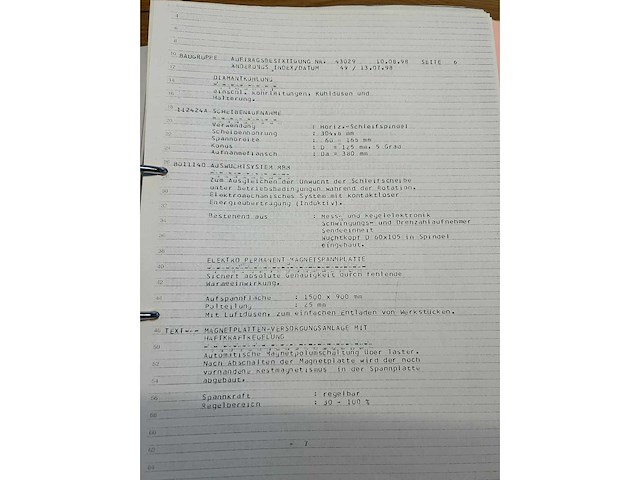 BAUGRUPPE AUFTRAGSBESTÄTIGUNG NR. 43029 10.08.98 SEITE 6
ÄNDERUNGS_INDEX/DATUM 49 / 13.07.98
DIAMANTKÜHLUNG
einschl. Rohrleitungen, Kühldüsen und
Halterung.
112424A SCHEIBENAUFNAHME
Verwendung : Horiz.-Schleifspindel
Scheibenbohrung : 304,8 mm
Spannbreite : 60 - 165 mm
Konus : D = 125 mm, 5 Grad
Aufnahmeflansch : Da = 380 mm
8011140 AUSWUCHTSYSTEM HBA
Zum Ausgleichen der Unwucht der Schleifscheibe
unter Betriebsbedingungen während der Rotation.
Elektromechanisches System mit kontaktloser
Energieübertragung (induktiv).
Bestehend aus : Mess- und Regelelektronik
Schwingungs- und Drehzahlaufnehmer
Sendeeinheit
Wuchtkopf D 60x105 in Spindel
eingebaut.
ELEKTRO_PERMANENT_MAGNETSPANNPLATTE
Sichert absolute Genauigkeit durch fehlende
Wärmeeinwirkung.
Aufspannfläche : 1500 x 900 mm
Polteilung : 25 mm
Mit Luftdüsen, zum einfachen Entladen von Werkstücken.
TEXT--- MAGNETPLATTEN-VERSORGUNGSANLAGE MIT
HAFTKRAFTREGELUNG
Automatische Magnetpolumschaltung über Taster.
Nach Abschalten der Magnetplatte wird der noch
vorhandene Restmagnetismus in der Spannplatte
abgebaut.
Spannkraft : regelbar
Regelbereich : 30 - 100 %
- 7